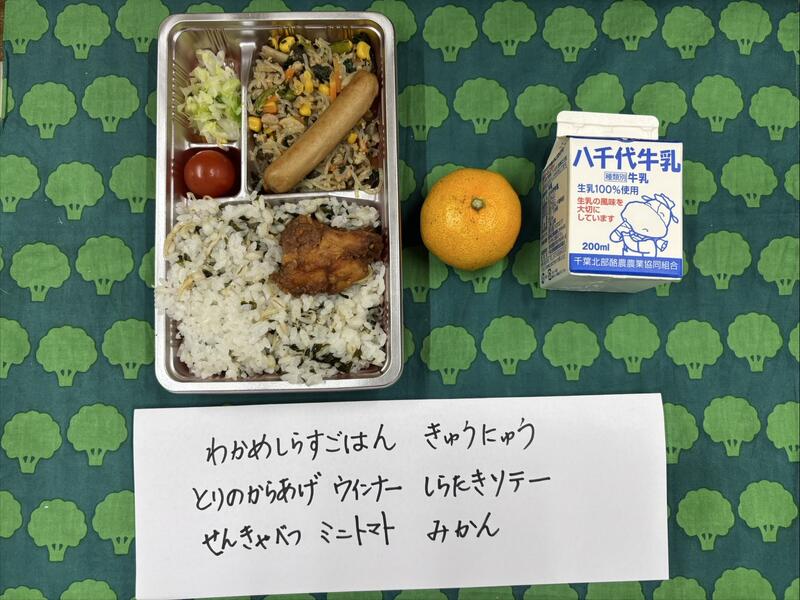 八千代牛乳
種類別 牛乳
生乳100%使用
生乳の風味を
大切に
しています
200ml
千葉北部酪農農業協同組合
わかめしらすごはん きゅうにゅう
とりのからあげ ウインナー しらたきソテー
せんきゃべつ ミニトマト みかん